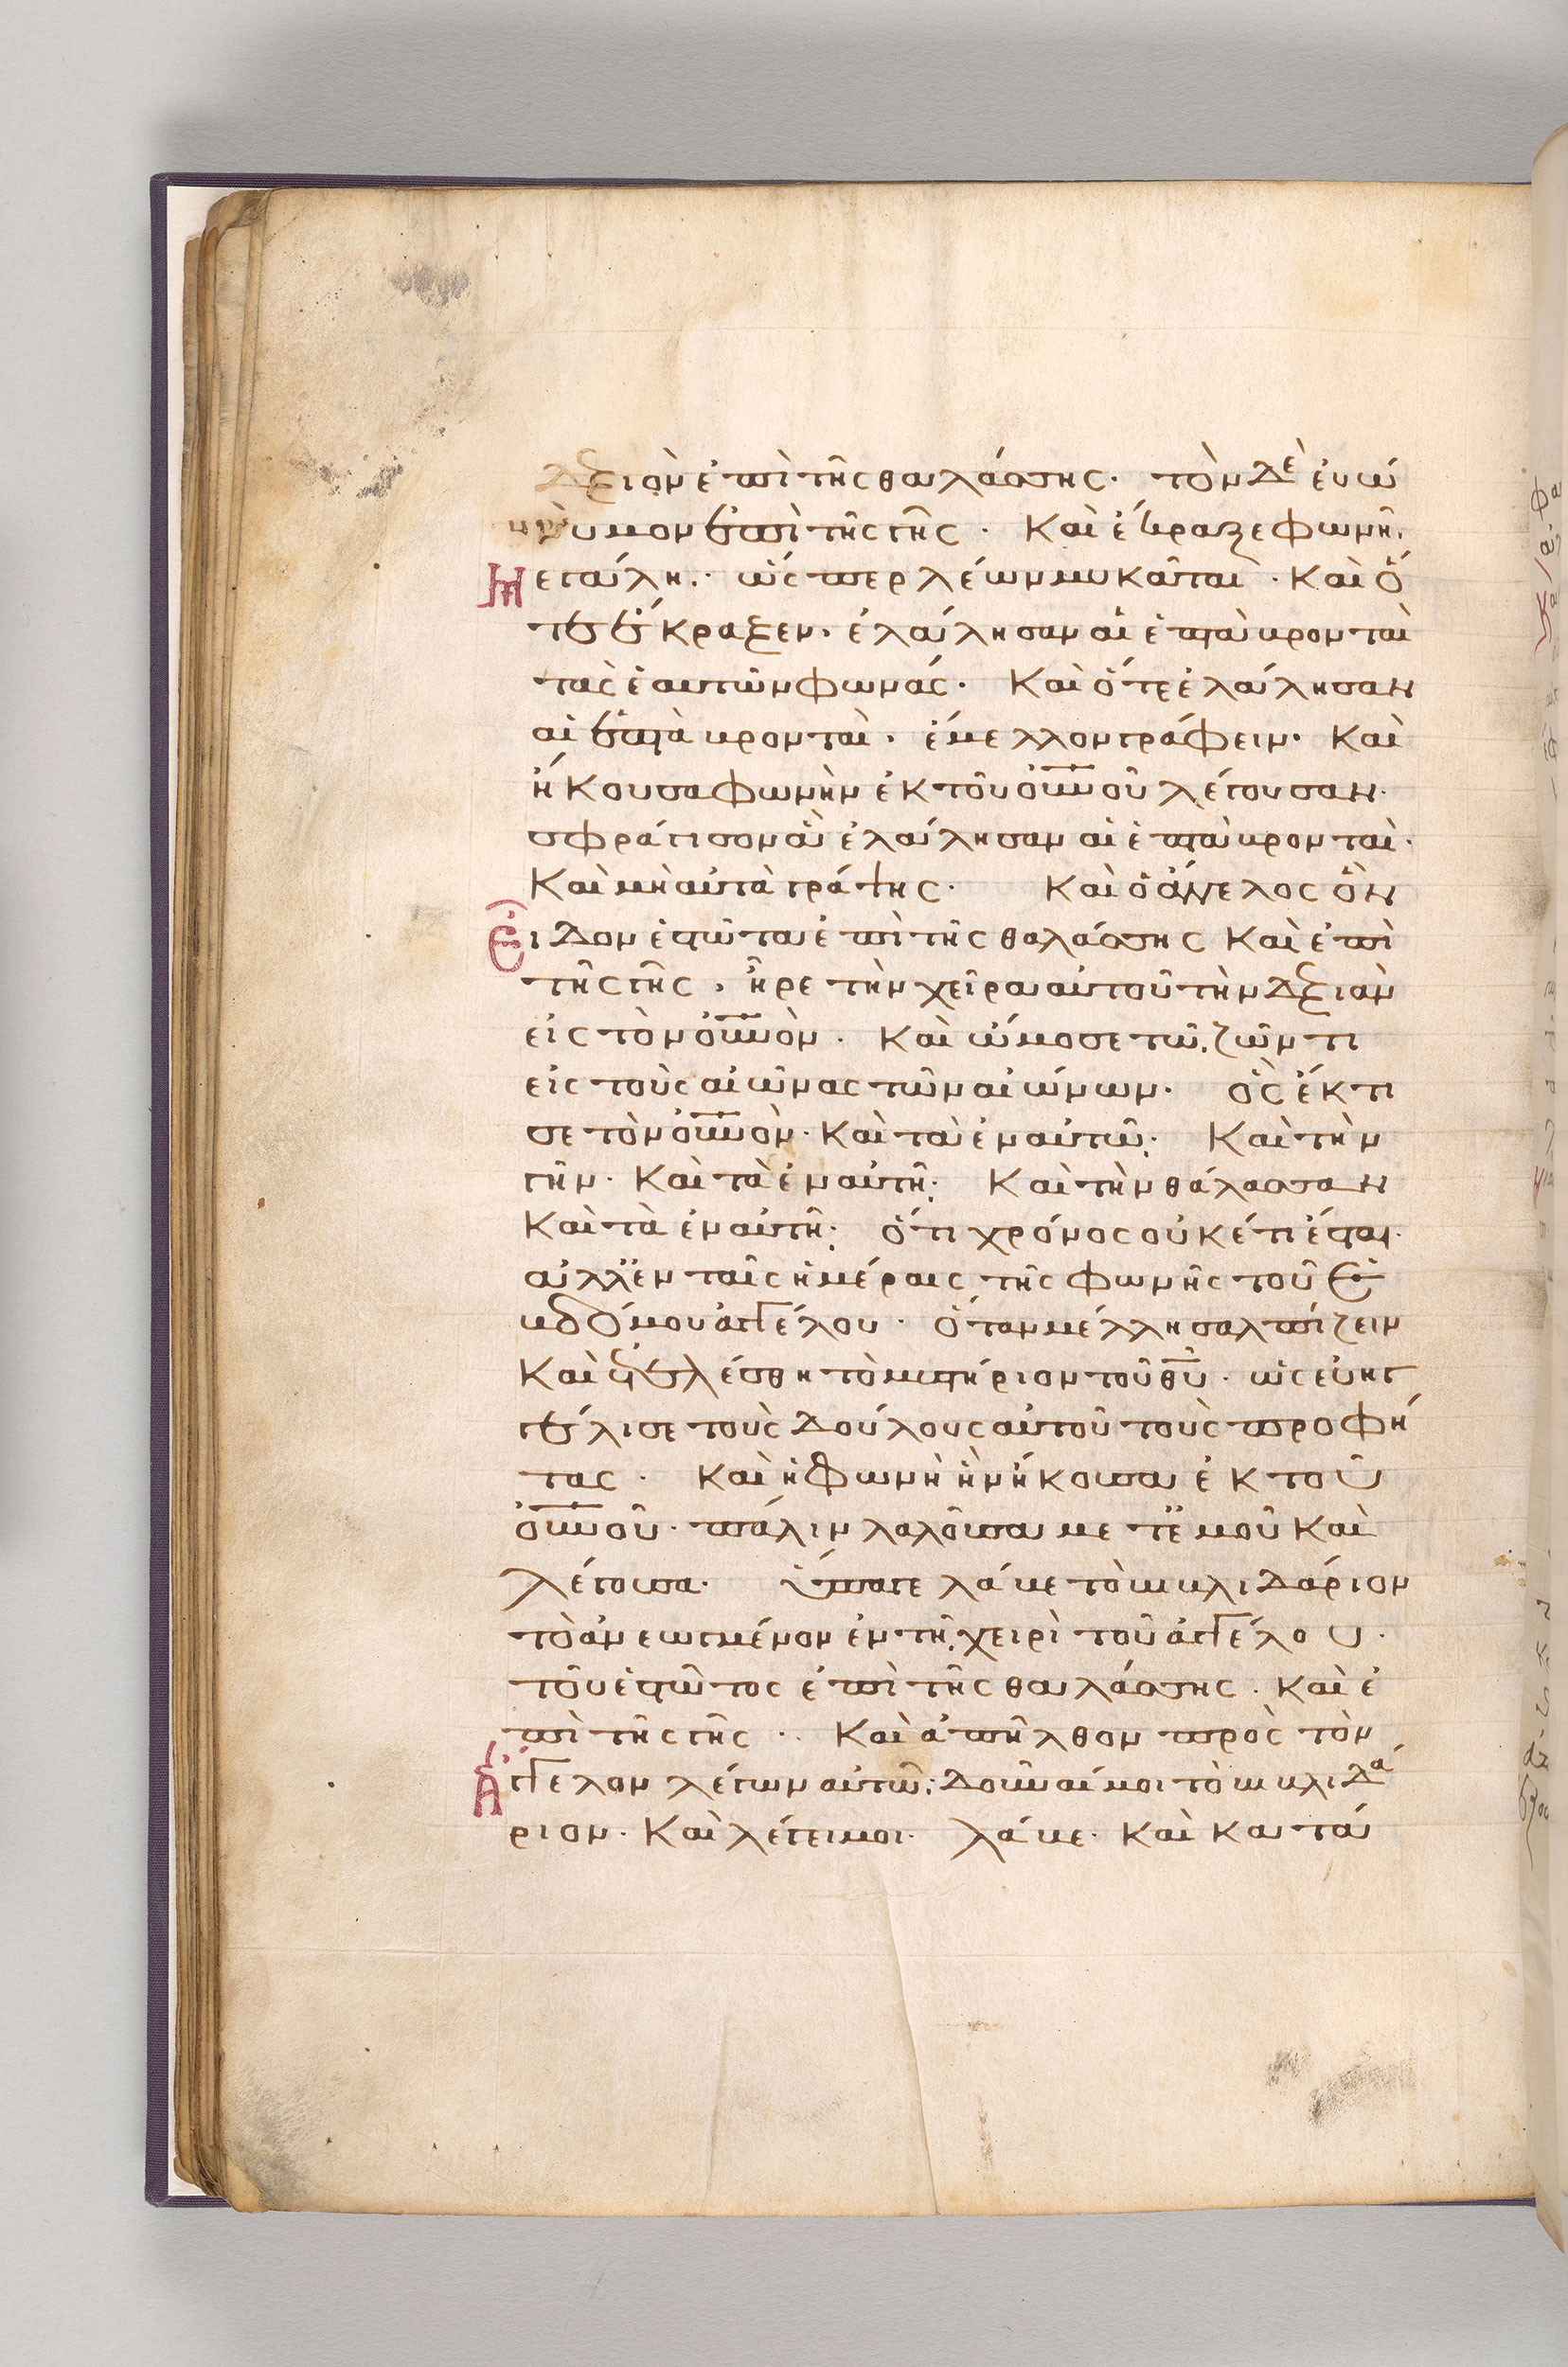 δεξιὸν ἐπὶ τῆς θαλάσσης· τὸν δὲ ἐυώ
νυμον ἐπὶ τῆς γῆς· Καὶ ἔκραξε φωνῆ,
Μεγάλη· ὥσπερ λέων μυκᾶται· Καὶ ὅ
τε ἔκραξεν· ἐλάλησαν αἱ ἑπτὰ βρονταὶ
τὰς ἑαυτῶν φωνάς· Καὶ ὅτε ἐλάλησαν
αἱ ἑπτὰ βρονταὶ· ἔμελλον γράφειν· Καὶ
ἤκουσα φωνὴν ἐκ τοῦ οὐνοῦ λέγουσαν·
σφράγισον ἃ ἐλάλησαν αἱ ἑπτὰ βρονταὶ·
Καὶ μὴ αὐτὰ γράψης· Καὶ ὁ ἄγγελος ὃν
Εἶδον ἑστῶτα ἐπὶ τῆς θαλάσσης Καὶ ἐπὶ
τῆς γῆς, ἦρε τὴν χεῖρα αὐτοῦ τὴν δεξιὰν
εἰς τὸν οὐνὸν· Καὶ ὤμοσε τῶ ζῶντι
εἰς τοὺς αἰῶνας τῶν αἰώνων· ὃς ἔκτι
σε τὸν οὐνὸν· Καὶ τὰ ἐν αὐτῶ· Καὶ τὴν
γῆν· Καὶ τὰ ἐν αὐτῆ· Καὶ τὴν θάλασσαν
Καὶ τὰ ἐν αὐτῆ· ὅτι χρόνος οὐκέτι ἔσται·
ἀλλ' ἐν ταῖς ἡμέραις τῆς φωνῆς τοῦ ἑ
βδόμου ἀγγέλου· ὅταν μέλλη σαλπίζειν
Καὶ ἐτελέσθη τὸ μυστήριον τοῦ θυ· ὡς εὐηγ
γέλισε τοὺς δούλους αὐτοῦ τοὺς προφή
τας· Καὶ ἡ φωνὴ ἣν ἤκουσα ἐκ τοῦ
οὐνοῦ· πάλιν λαλοῦσα μετ' ἐμοῦ Καὶ
λέγουσα· ὕπαγε λάβε τὸ βιβλιδάριον
τὸ ἀνεωγμένον ἐν τῆ χειρὶ τοῦ ἀγγέλου·
τοῦ ἑστῶτος ἐπὶ τῆς θαλάσσης· Καὶ ἐ
πὶ τῆς γῆς· Καὶ ἀπῆλθον πρὸς τὸν
Ἄγγελον λέγων αὐτῶ· δοῦναί μοι τὸ βιβλιδά
ριον· Καὶ λέγει μοι· λάβε· Καὶ κατά